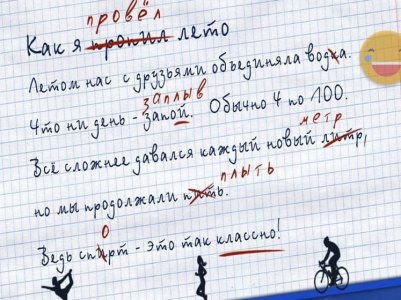 провёл
Как я пропил лето
Летом нас с друзьями объединяла водка.
заплыв
Что ни день - запой. Обычно 4 по 100.
метр
Всё сложнее давался каждый новый литр,
плыть
но мы продолжали пить.
о
Ведь спирт - это так классно!